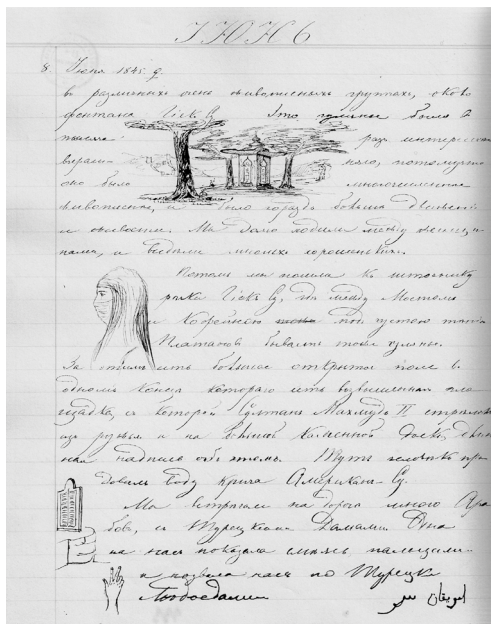 ІЮНЬ
8. Іюня 1845 г.
въ различныхъ очень живописныхъ группахъ, около
фонтана Гіокъ Су. Это гулянье было 2
раза интересн
вчераш няго, потому что
оно было многочисленное
живописнѣе, и было гораздо больше движенія
и живости. Мы долго ходили между женщи-
нами, и видѣли многихъ хорошенькихъ.
Потомъ мы пошли къ источнику
рѣки Гіокъ Су, гдѣ между Мостомъ
и Кофейною подъ густою тѣнью
Платановъ бываетъ тоже гулянье.
За этимъ есть большое открытое поле въ
одномъ концѣ котораго есть возвышенная пло
щадка, съ которой Султанъ Махмудъ II стрѣлялъ
изъ ружья и на большой каменной доскѣ, длин
ная надпись объ этомъ. Тутъ человѣкъ про
давалъ воду крича Американъ-Су.
Мы встрѣтили на дорогѣ много Ара
бовъ, съ Турецкими Дамами. Одна
на насъ показала смѣясь пальцами
и назвала насъ по Турецки
Любоѣдами
امریقان سو